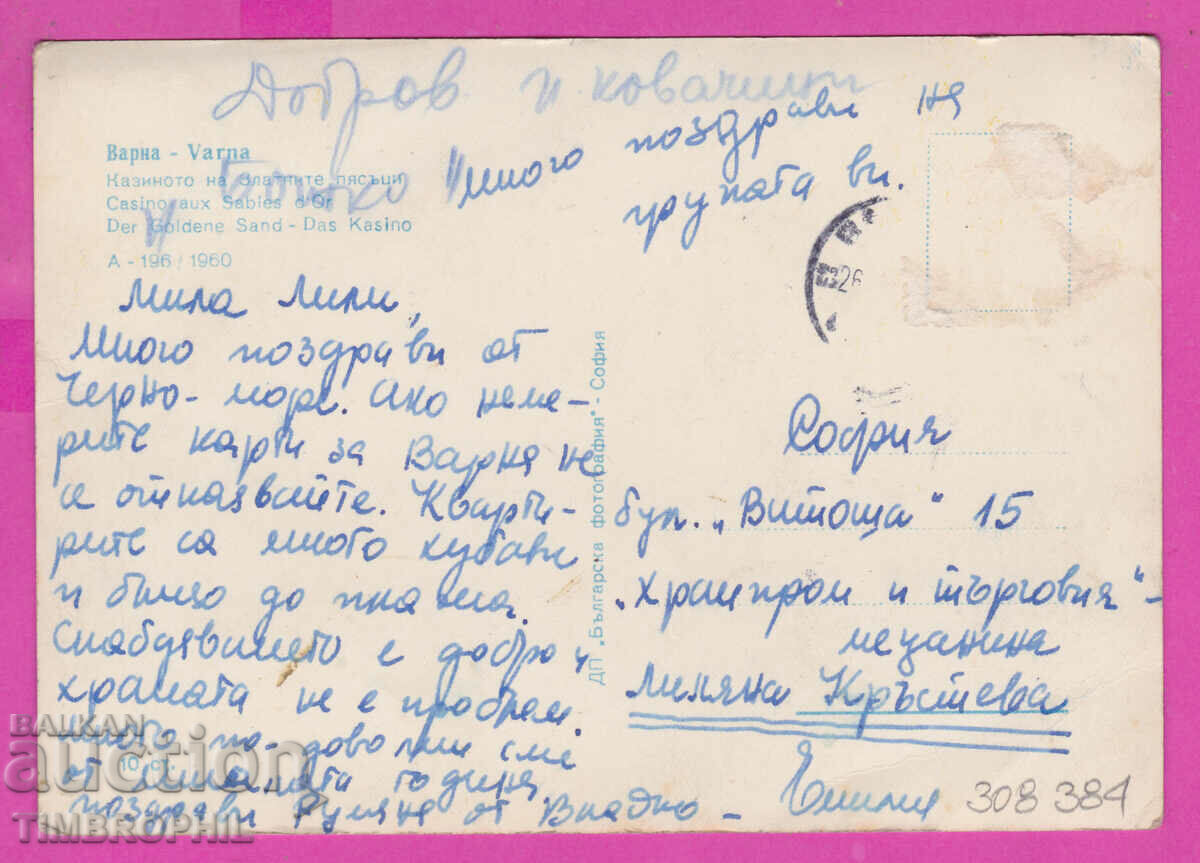 Добров и Ковачики
Много поздрави на
групата ви.
Варна - Varna
Казиното на Златните пясъци
Casino aux Sables d'Or
Der Goldene Sand - Das Kasino
А - 196 / 1960
Мила Лили,
Много поздрави от
Черно-море. Ако неме-
рите карти за Варна не
се отказвайте. Кварти-
рите са много хубави
и близо до плажа.
Снабдяването е добро и
храната не е проблем.
Много по-доволни сме
от миналата година
поздрави Румяна от Владко -
Емилия
10 ст.
ДП „Българска фотография" - София
26
София
бул. „Витоша" 15
„Хрампром и търговия" -
мецанина
Лиляна Кръстева
308 384
BALKAN
auction
TIMBROPHIL